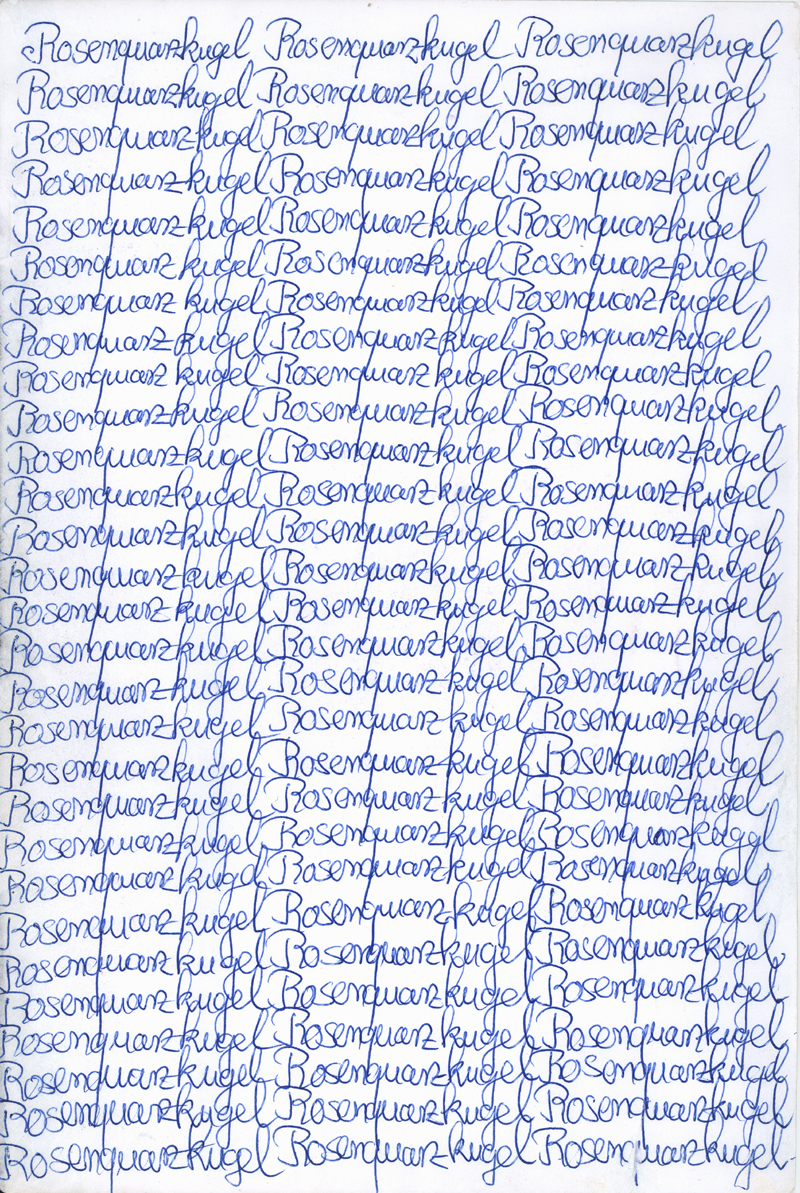 Rosenquarzkugel Rosenquarzkugel Rosenquarzkugel
Rosenquarzkugel Rosenquarzkugel Rosenquarzkugel
Rosenquarzkugel Rosenquarzkugel Rosenquarzkugel
Rosenquarzkugel Rosenquarzkugel Rosenquarzkugel
Rosenquarzkugel Rosenquarzkugel Rosenquarzkugel
Rosenquarzkugel Rosenquarzkugel Rosenquarzkugel
Rosenquarzkugel Rosenquarzkugel Rosenquarzkugel
Rosenquarzkugel Rosenquarzkugel Rosenquarzkugel
Rosenquarzkugel Rosenquarzkugel Rosenquarzkugel
Rosenquarzkugel Rosenquarzkugel Rosenquarzkugel
Rosenquarzkugel Rosenquarzkugel Rosenquarzkugel
Rosenquarzkugel Rosenquarzkugel Rosenquarzkugel
Rosenquarzkugel Rosenquarzkugel Rosenquarzkugel
Rosenquarzkugel Rosenquarzkugel Rosenquarzkugel
Rosenquarzkugel Rosenquarzkugel Rosenquarzkugel
Rosenquarzkugel Rosenquarzkugel Rosenquarzkugel
Rosenquarzkugel Rosenquarzkugel Rosenquarzkugel
Rosenquarzkugel Rosenquarzkugel Rosenquarzkugel
Rosenquarzkugel Rosenquarzkugel Rosenquarzkugel
Rosenquarzkugel Rosenquarzkugel Rosenquarzkugel
Rosenquarzkugel Rosenquarzkugel Rosenquarzkugel
Rosenquarzkugel Rosenquarzkugel Rosenquarzkugel
Rosenquarzkugel Rosenquarzkugel Rosenquarzkugel
Rosenquarzkugel Rosenquarzkugel Rosenquarzkugel
Rosenquarzkugel Rosenquarzkugel Rosenquarzkugel
Rosenquarzkugel Rosenquarzkugel Rosenquarzkugel
Rosenquarzkugel Rosenquarzkugel Rosenquarzkugel
Rosenquarzkugel Rosenquarzkugel Rosenquarzkugel
Rosenquarzkugel Rosenquarzkugel Rosenquarzkugel